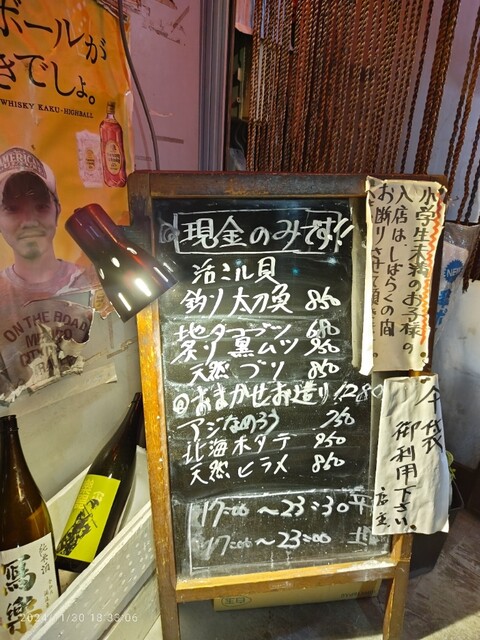 ボールが
きでしょ。
WHISKY KAKU-HIGHBALL
AMERICAN
ON THE ROAD
現金のみです!!
活ミル貝
釣り太刀魚 850
地タコブツ 680
炙り黒ムツ 950
天然ブリ 850
@おまかせお造り 1280
アジなめろう 750
北海ホタテ 950
天然ヒラメ 850
17:00～23:30 平
17:00～23:00 土
小学生未満のお子様の
入店はしばらくの間
お断りさせて頂きます。
御利用下さい。
店主
NEW
純米酒
寫楽
2024/11/30 18:38:06